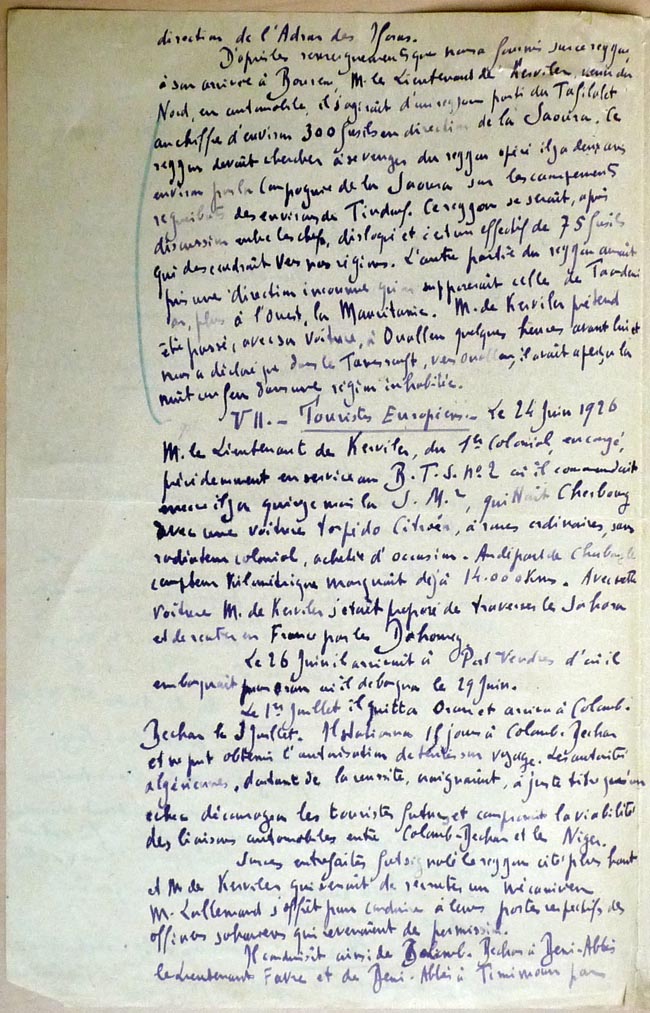 direction de l'Adrar des Iforas.
D'après les renseignements que nous a fournis sur ce rezzou,
à son arrivée à Bourem, M. le Lieutenant de Kerviler, venu du
Nord, en automobile, il s'agirait d'un rezzou parti du Tafilalet
au chiffre d'environ 300 fusils en direction de la Saoura. Ce
rezzou devait chercher à se venger du rezzou opéré il y a deux ans
environ par la Compagnie de la Saoura sur les campements
regueibats des environs de Tindouf. Ce rezzou se serait, après
discussion entre les chefs, disloqué et c'est un effectif de 75 fusils
qui descendrait vers nos régions. L'autre partie du rezzou aurait
pris une direction inconnue supposerait celle de Taodeni
ou, plus à l'Ouest, la Mauritanie. M. de Kerviler prétend
être passé, avec sa voiture, à Ouallen quelques heures avant lui et
nous a déclaré que dans le Tanezrouft, vers Ouallen, il avait aperçu la
nuit un feu dans une région inhabitée.
VII.- Touristes Européens.- Le 24 Juin 1926
M. le Lieutenant de Kerviler, du 1er Colonial, en congé,
précédemment en service au B.T.S. n°2 où il commandait
encore il y a quinze mois la S.M.2, quittait Cherbourg
avec une voiture torpédo Citroën, à roues ordinaires, sans
radiateur colonial, achetée d'occasion. Au départ de Cherbourg le
compteur kilométrique marquait déjà 14.000 Kms. Avec cette
voiture M. de Kerviler s'était proposé de traverser le Sahara
et de rentrer en France par le Dahomey.
Le 26 Juin il arrivait à Port Vendres d'où il
embarquait pour Oran où il débarqua le 29 Juin.
Le 1er Juillet il quitta Oran et arriva à Colomb-
Bechar le 3 Juillet. Il stationna 15 jours à Colomb-Bechar
et ne put obtenir l'autorisation de tenter son voyage. Les autorités
algériennes, doutant de la réussite, craignaient, à juste titre qu'un
échec découragea les touristes futurs et compromit la viabilité
des liaisons automobiles entre Colomb-Bechar et le Niger.
Sur ces entrefaites fut signalé le rezzou cité plus haut
et M. de Kerviler qui venait de recruter un mécanicien
M. Lallemand s'offrit pour conduire à leurs postes respectifs des
officiers sahariens qui revenaient de permission.
Il conduisit ainsi de Colomb-Bechar à Beni-Abbès
le Lieutenant Favre et de Beni-Abbès à Timimoun